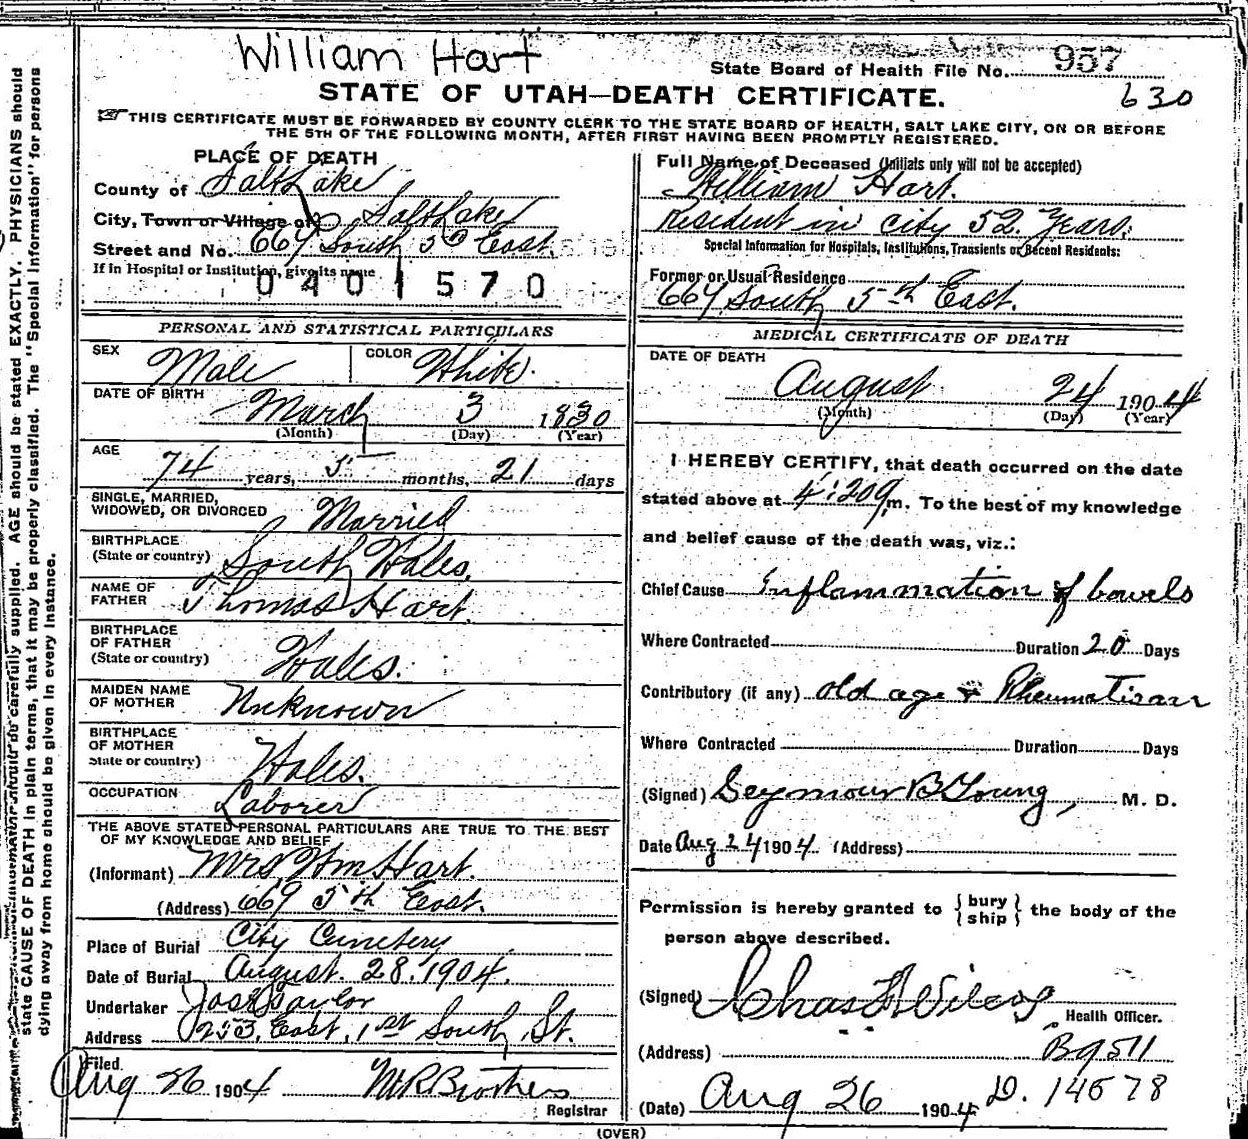 William Hart
State Board of Health File No. 957
630
STATE OF UTAH—DEATH CERTIFICATE.
THIS CERTIFICATE MUST BE FORWARDED BY COUNTY CLERK TO THE STATE BOARD OF HEALTH, SALT LAKE CITY, ON OR BEFORE
THE 5TH OF THE FOLLOWING MONTH, AFTER FIRST HAVING BEEN PROMPTLY REGISTERED.
PLACE OF DEATH
County of Salt Lake
City, Town or Village of Salt Lake
Street and No. 667 South 5th East.
If in Hospital or Institution, give its name
0401570
PERSONAL AND STATISTICAL PARTICULARS
SEX Male COLOR White.
DATE OF BIRTH
March 3 1830
(Month) (Day) (Year)
AGE
74 years, 5 months, 21 days
SINGLE, MARRIED,
WIDOWED, OR DIVORCED Married
BIRTHPLACE
(State or country) South Wales.
NAME OF
FATHER Thomas Hart.
BIRTHPLACE
OF FATHER
(State or country) Wales.
MAIDEN NAME
OF MOTHER Unknown
BIRTHPLACE
OF MOTHER
State or country) Wales.
OCCUPATION Laborer
THE ABOVE STATED PERSONAL PARTICULARS ARE TRUE TO THE BEST
OF MY KNOWLEDGE AND BELIEF
(Informant) Mrs Wm Hart.
(Address) 669 5th East.
Place of Burial City Cemetery
Date of Burial August. 28. 1904.
Undertaker Jos Taylor
Address 253. East. 1st South St.
Filed.
Aug 26 1904
Registrar
Full Name of Deceased (Initials only will not be accepted)
William Hart.
resident in city 52 Years.
Special Information for Hospitals, Institutions, Transients or Recent Residents:
Former or Usual Residence
667 South 5th East.
MEDICAL CERTIFICATE OF DEATH
DATE OF DEATH
August 24 1904
(Month) (Day) (Year)
I HEREBY CERTIFY, that death occurred on the date
stated above at 4:20 m. To the best of my knowledge
and belief cause of the death was, viz.:
Chief Cause Inflammation of bowels
Where Contracted Duration 20 Days
Contributory (if any) old age & Rheumatism
Where Contracted Duration Days
(Signed) Seymour B Young, M. D.
Date Aug 24 1904 (Address)
Permission is hereby granted to { bury
ship } the body of the
person above described.
(Signed) Chas Wilcox
Health Officer.
(Address) B9511
(Date) Aug 26 1904 D. 14578
(OVER)
state CAUSE OF DEATH in plain terms, that it may be properly classified. The "Special Information" for persons
dying away from home should be given in every instance.
carefully supplied. AGE should be stated EXACTLY. PHYSICIANS should